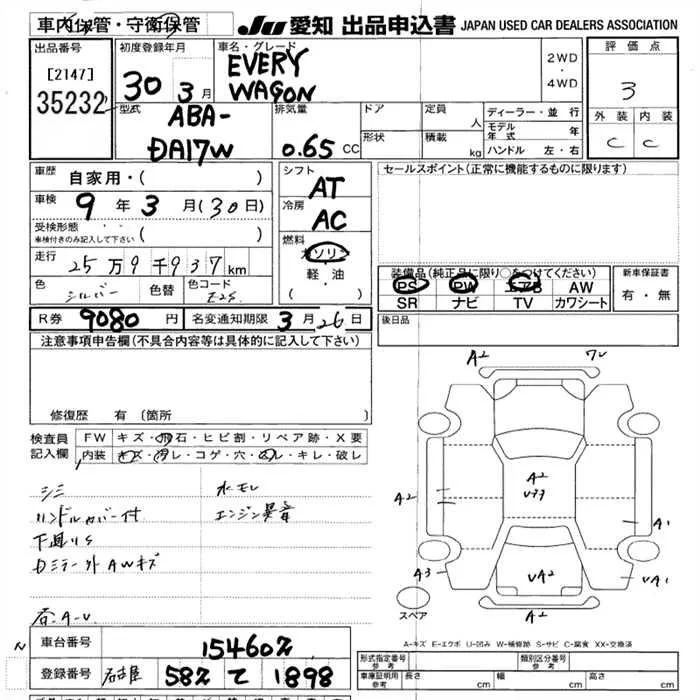 車内保管・守衛保管
JU 愛知 出品申込書 JAPAN USED CAR DEALERS ASSOCIATION
出品番号
[2147]
35232
初度登録年月
30 3月
車名・グレード
EVERY
WAGON
2WD
・
4WD
評価点
3
外装 内装
C C
型式
ABA-
DA17W
排気量
0.65 CC
ドア
形状
定員 人
積載 kg
ディーラー・並行
モデル年式 年
ハンドル 左・右
車歴
自家用・( )
車検
9年3月(30日)
受検形態
車検付きのみ記入して下さい ( )
走行
25万9千937km
色
シルバー
色替
色コード
Z2S
シフト
AT
冷房
AC
燃料
ガソリン
軽・油
( )
セールスポイント(正常に機能するものに限ります)
装備品(純正品に限り○をつけてください)
PS PW エアB AW
SR ナビ TV カワシート
新車保証書
有・無
R券 9080円
名変通知期限 3月26日
後日品
注意事項申告欄(不具合内容等は具体的に記入して下さい)
修復歴 有(箇所
検査員
記入欄
FW キズ・飛石・ヒビ割・リペア跡・X要
内装 キズ・汚レ・コゲ・穴・ヌレ・キレ・破レ
シミ
水モレ
ハンドルカバー付
エンジン異音
下廻りS
Dミラー外AWキズ
A2
A2
A2
A1
A3
UA2
UA1
A2
スペア
A-キズ E-エクボ U-凹み W-補修跡 S-サビ C-腐食 XX-交換済
車台番号
154602
登録番号
名古屋 582 て 1898
形式指定番号
参考
類別区分番号
参考
車庫証明用
参考
長さ cm
幅 cm
高さ cm